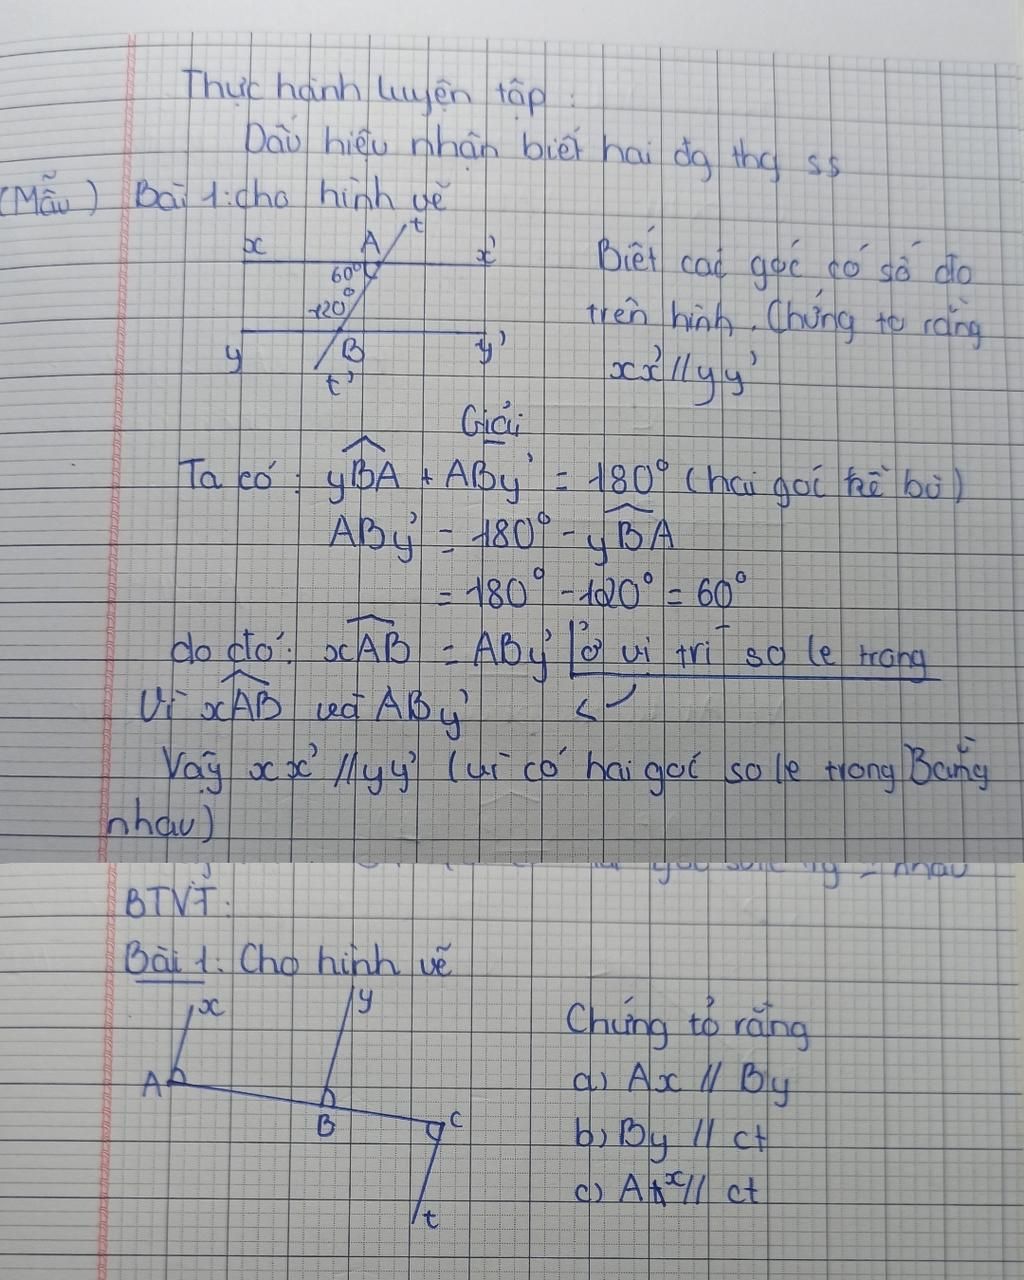 Thực hành luyện tập :
Dấu hiệu nhận biết hai đg thg ss
(Mẫu) Bài 1: cho hình vẽ
x A t x'
60°
120°
y B y'
t'
Biết các góc có số đo
trên hình. Chứng tỏ rằng
xx' // yy'
Giải
Ta có: yBA + ABy' = 180° (hai góc kề bù)
ABy' = 180° - yBA
= 180° - 120° = 60°
do đó: xAB = ABy' ở vị trí so le trong
Vì xAB và ABy'
Vậy xx' // yy' (vì có hai góc so le trong Bằng
nhau)
= nhau
BTVT:
Bài 1: Cho hình vẽ
x y
A B C
t
Chứng tỏ rằng
a) Ax // By
b) By // ct
c) Ax // ct